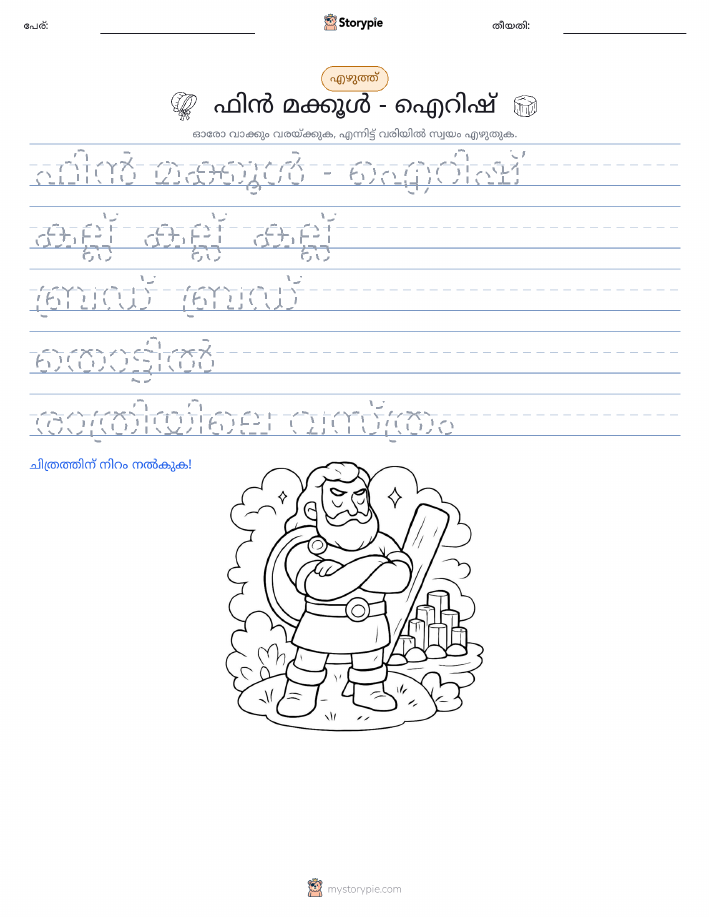 പേര്:
Storypie
തീയതി:
എഴുത്ത്
ഫിൻ മക്കൂൾ - ഐറിഷ്
ഓരോ വാക്കും വരയ്ക്കുക, എന്നിട്ട് വരിയിൽ സ്വയം എഴുതുക.
ഫിൻ മക്കൂൾ - ഐറിഷ്
കല്ല് കല്ല് കല്ല്
ബ്രഡ് ബ്രഡ്
തൊട്ടിൽ
രാത്രിയിലെ വസ്ത്രം
ചിത്രത്തിന് നിറം നൽകുക!
mystorypie.com